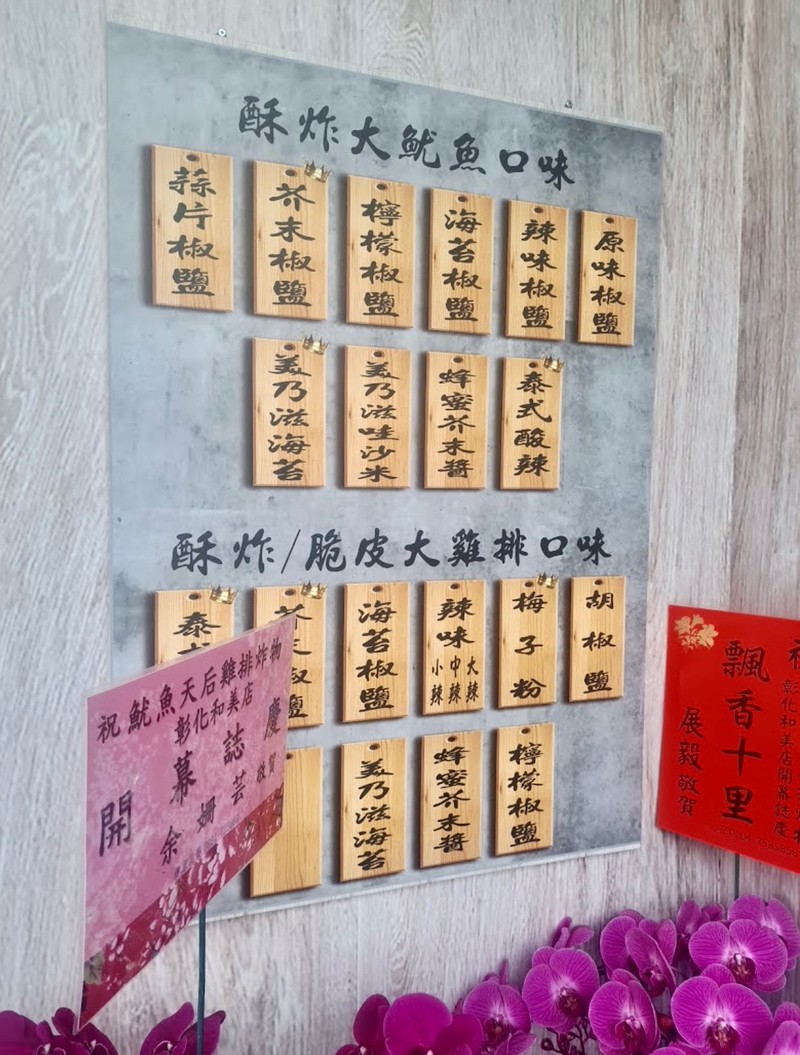 酥炸大魷魚口味
原味椒鹽
辣味椒鹽
海苔椒鹽
檸檬椒鹽
芥末椒鹽
蒜片椒鹽
泰式酸辣
蜂蜜芥末醬
美乃滋哇沙米
美乃滋海苔
酥炸/脆皮大雞排口味
胡椒鹽
梅子粉
辣味
大辣
中辣
小辣
海苔椒鹽
芥末椒鹽
泰
檸檬椒鹽
蜂蜜芥末醬
美乃滋海苔
祝魷魚天后雞排炸物
彰化和美店
開幕誌慶
余姍芸 敬賀
彰化和美店開幕誌慶
飄香十里
展毅敬賀